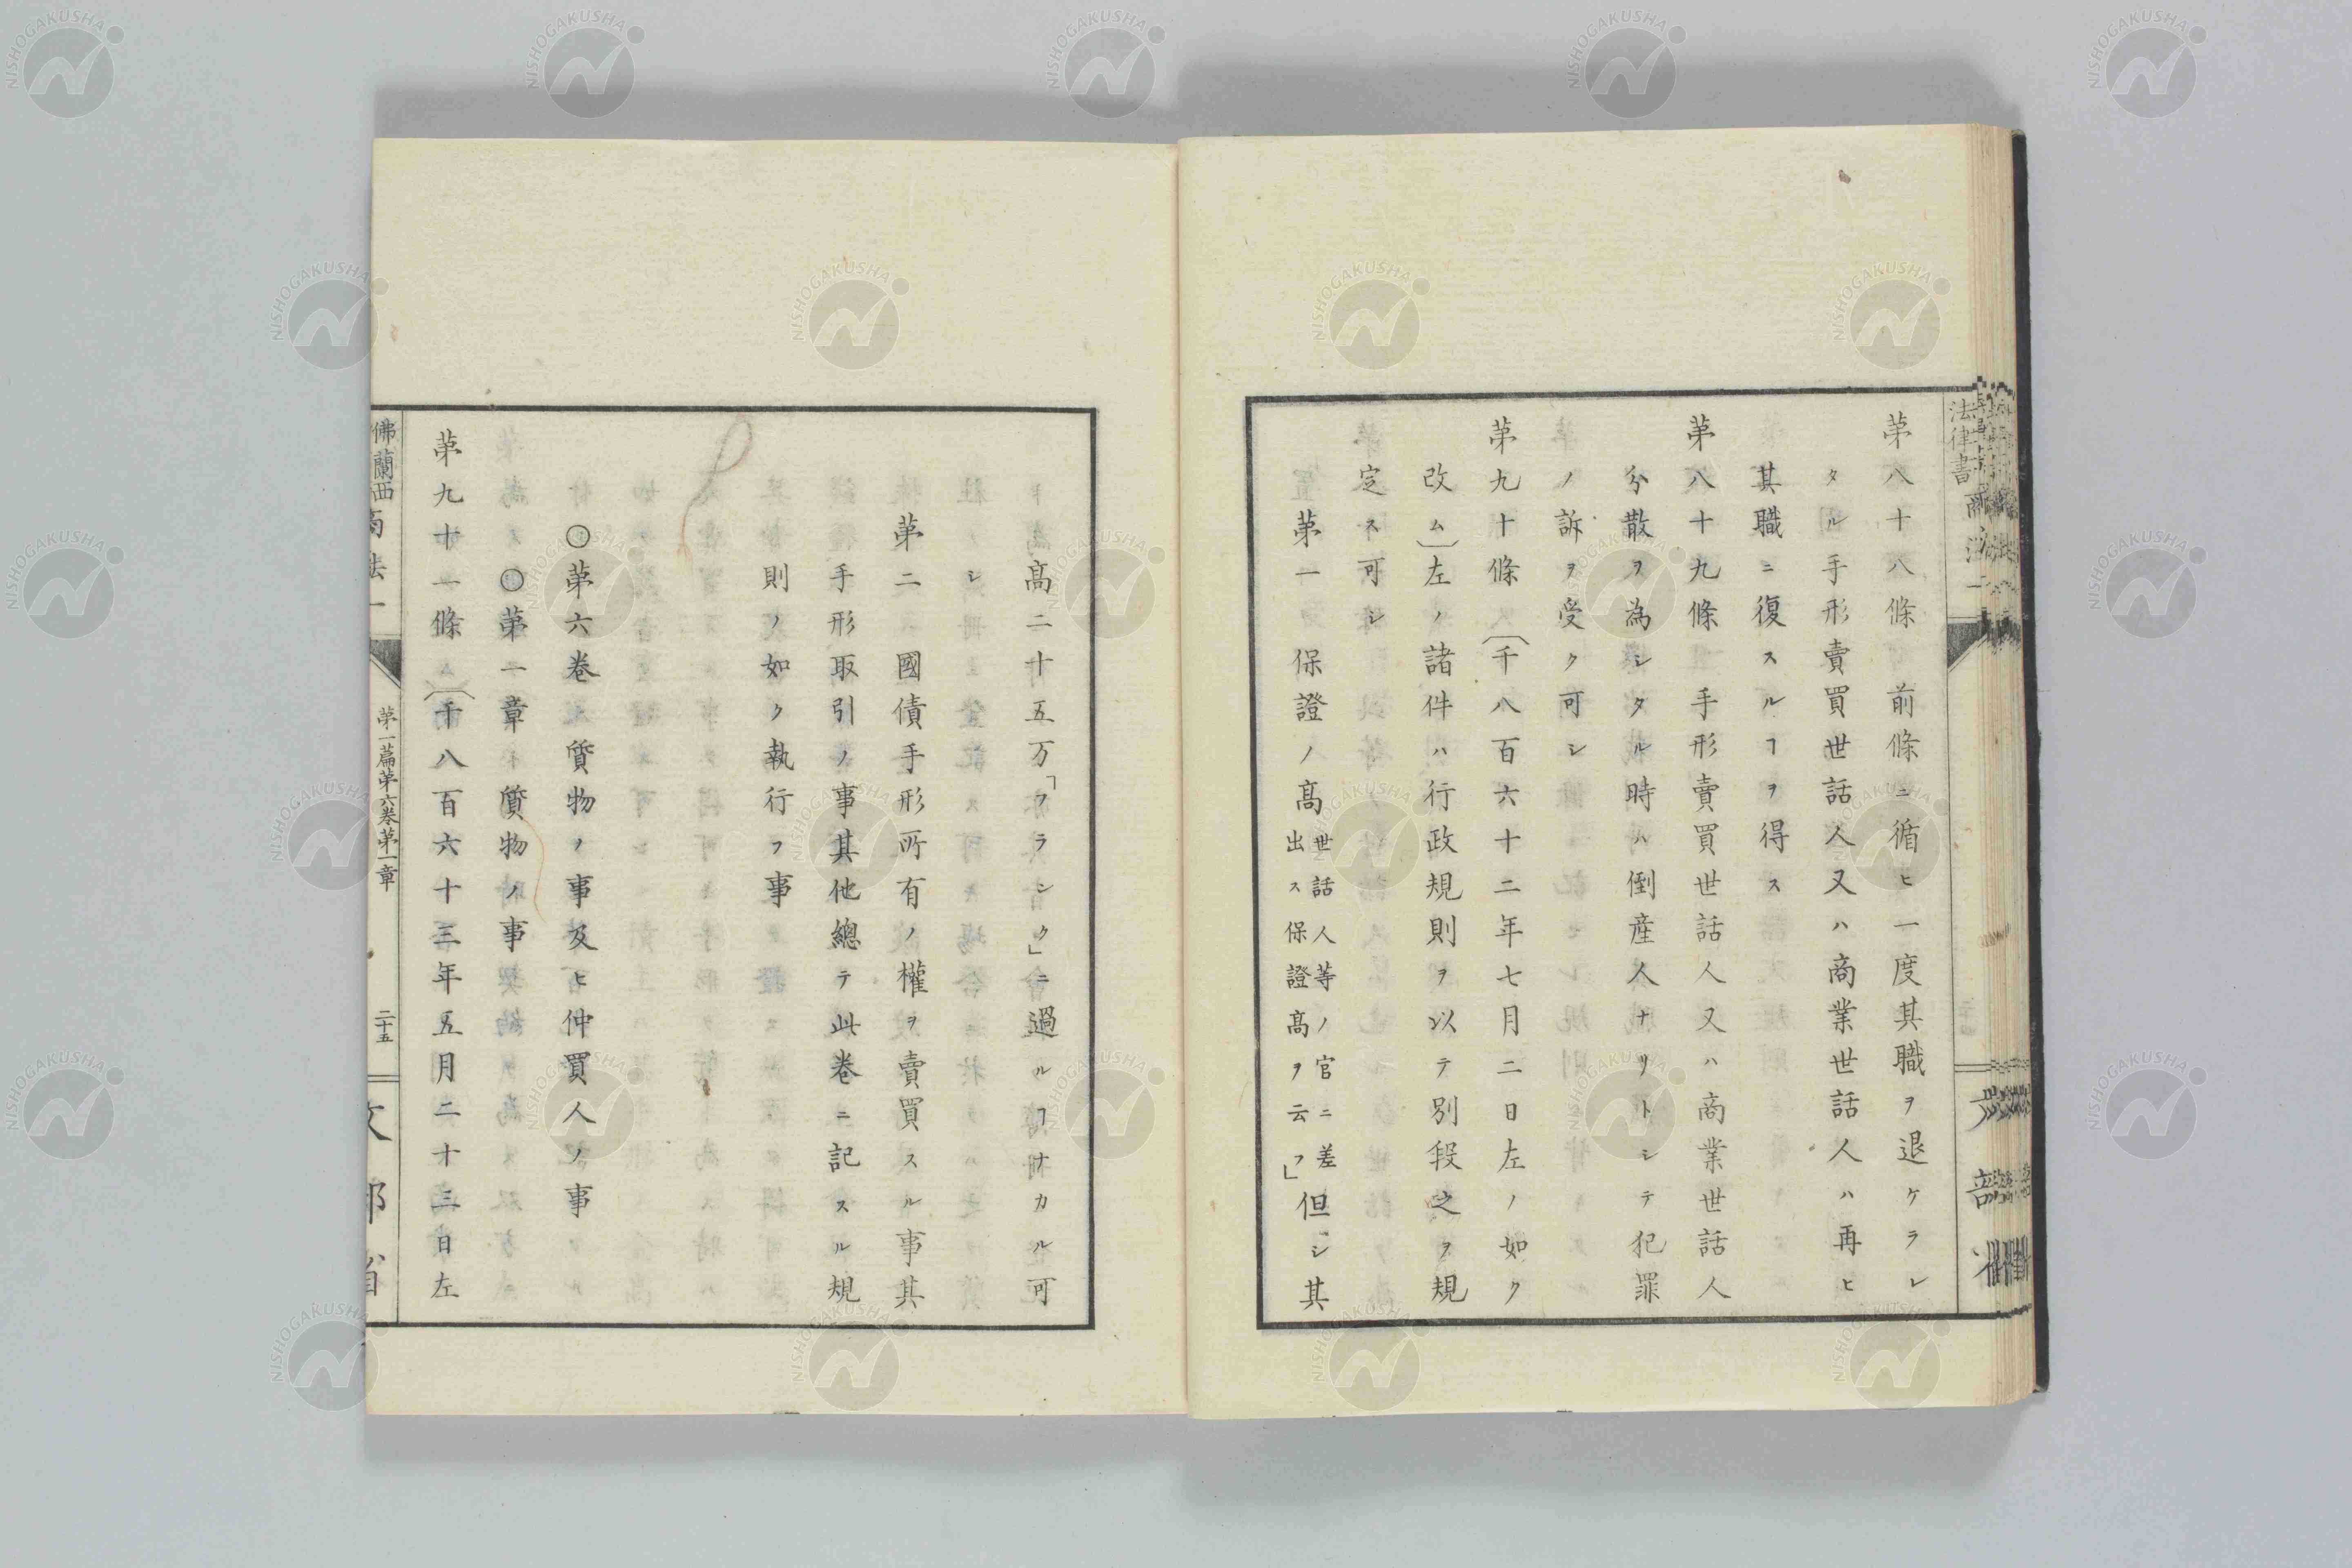 第八十八條　前條ニ循ヒ一度其職ヲ退ケラレ
タル手形賣買世話人又ハ商業世話人ハ再ヒ
其職ニ復スルヿヲ得ス
第八十九條　手形賣買世話人又ハ商業世話人
分散ヲ為シタル時ハ倒産人ナリトシテ犯罪
ノ訴ヲ受ク可シ
第九十條〔千八百六十二年七月二日左ノ如ク
改ム〕左ノ諸件ハ行政規則ヲ以テ別段之ヲ規
定ス可シ
第一　保證ノ髙世話人等ノ官ニ差
出ス保證髙ヲ云フ」但シ其
髙二十五万「フランク」ニ過ルヿナカル可
シ
第二　國債手形所有ノ權ヲ賣買スル事其
手形取引ノ事其他總テ此卷ニ記スル規
則ノ如ク執行フ事
〇第六卷　質物ノ事及ヒ仲買人ノ事
〇第一章　質物ノ事
第九十一條〔千八百六十三年五月二十三日左
佛蘭西商法一
第一篇第六卷第一章
二十五
文部省
法律書
NISHOGAKUSHA